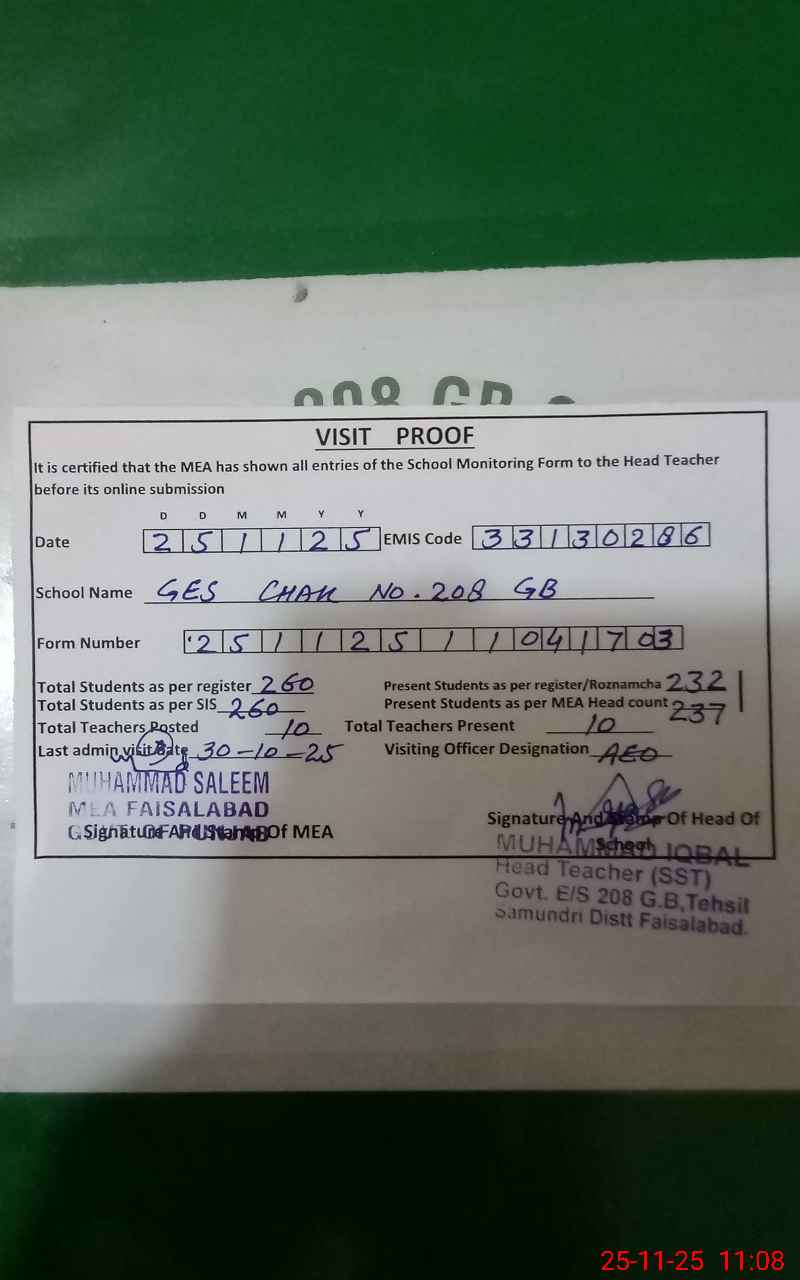 208 GB
VISIT PROOF
It is certified that the MEA has shown all entries of the School Monitoring Form to the Head Teacher
before its online submission
D D M M Y Y
Date 2 5 1 1 2 5 EMIS Code 3 3 1 3 0 2 8 6
School Name GES CHAK NO. 208 GB
Form Number 2 5 1 1 2 5 1 1 0 4 1 7 03
Total Students as per register 260 Present Students as per register/Roznamcha 232
Total Students as per SIS 260 Present Students as per MEA Head count 237
Total Teachers Posted 10 Total Teachers Present 10
Last admin visit Date 30-10-25 Visiting Officer Designation AEO
MUHAMMAD SALEEM
MEA FAISALABAD
GOVT. OF PUNJAB
Signature And Stamp Of MEA
Signature And Stamp Of Head Of
School
MUHAMMAD IQBAL
Head Teacher (SST)
Govt. E/S 208 G.B,Tehsil
Samundri Distt Faisalabad.
25-11-25 11:08